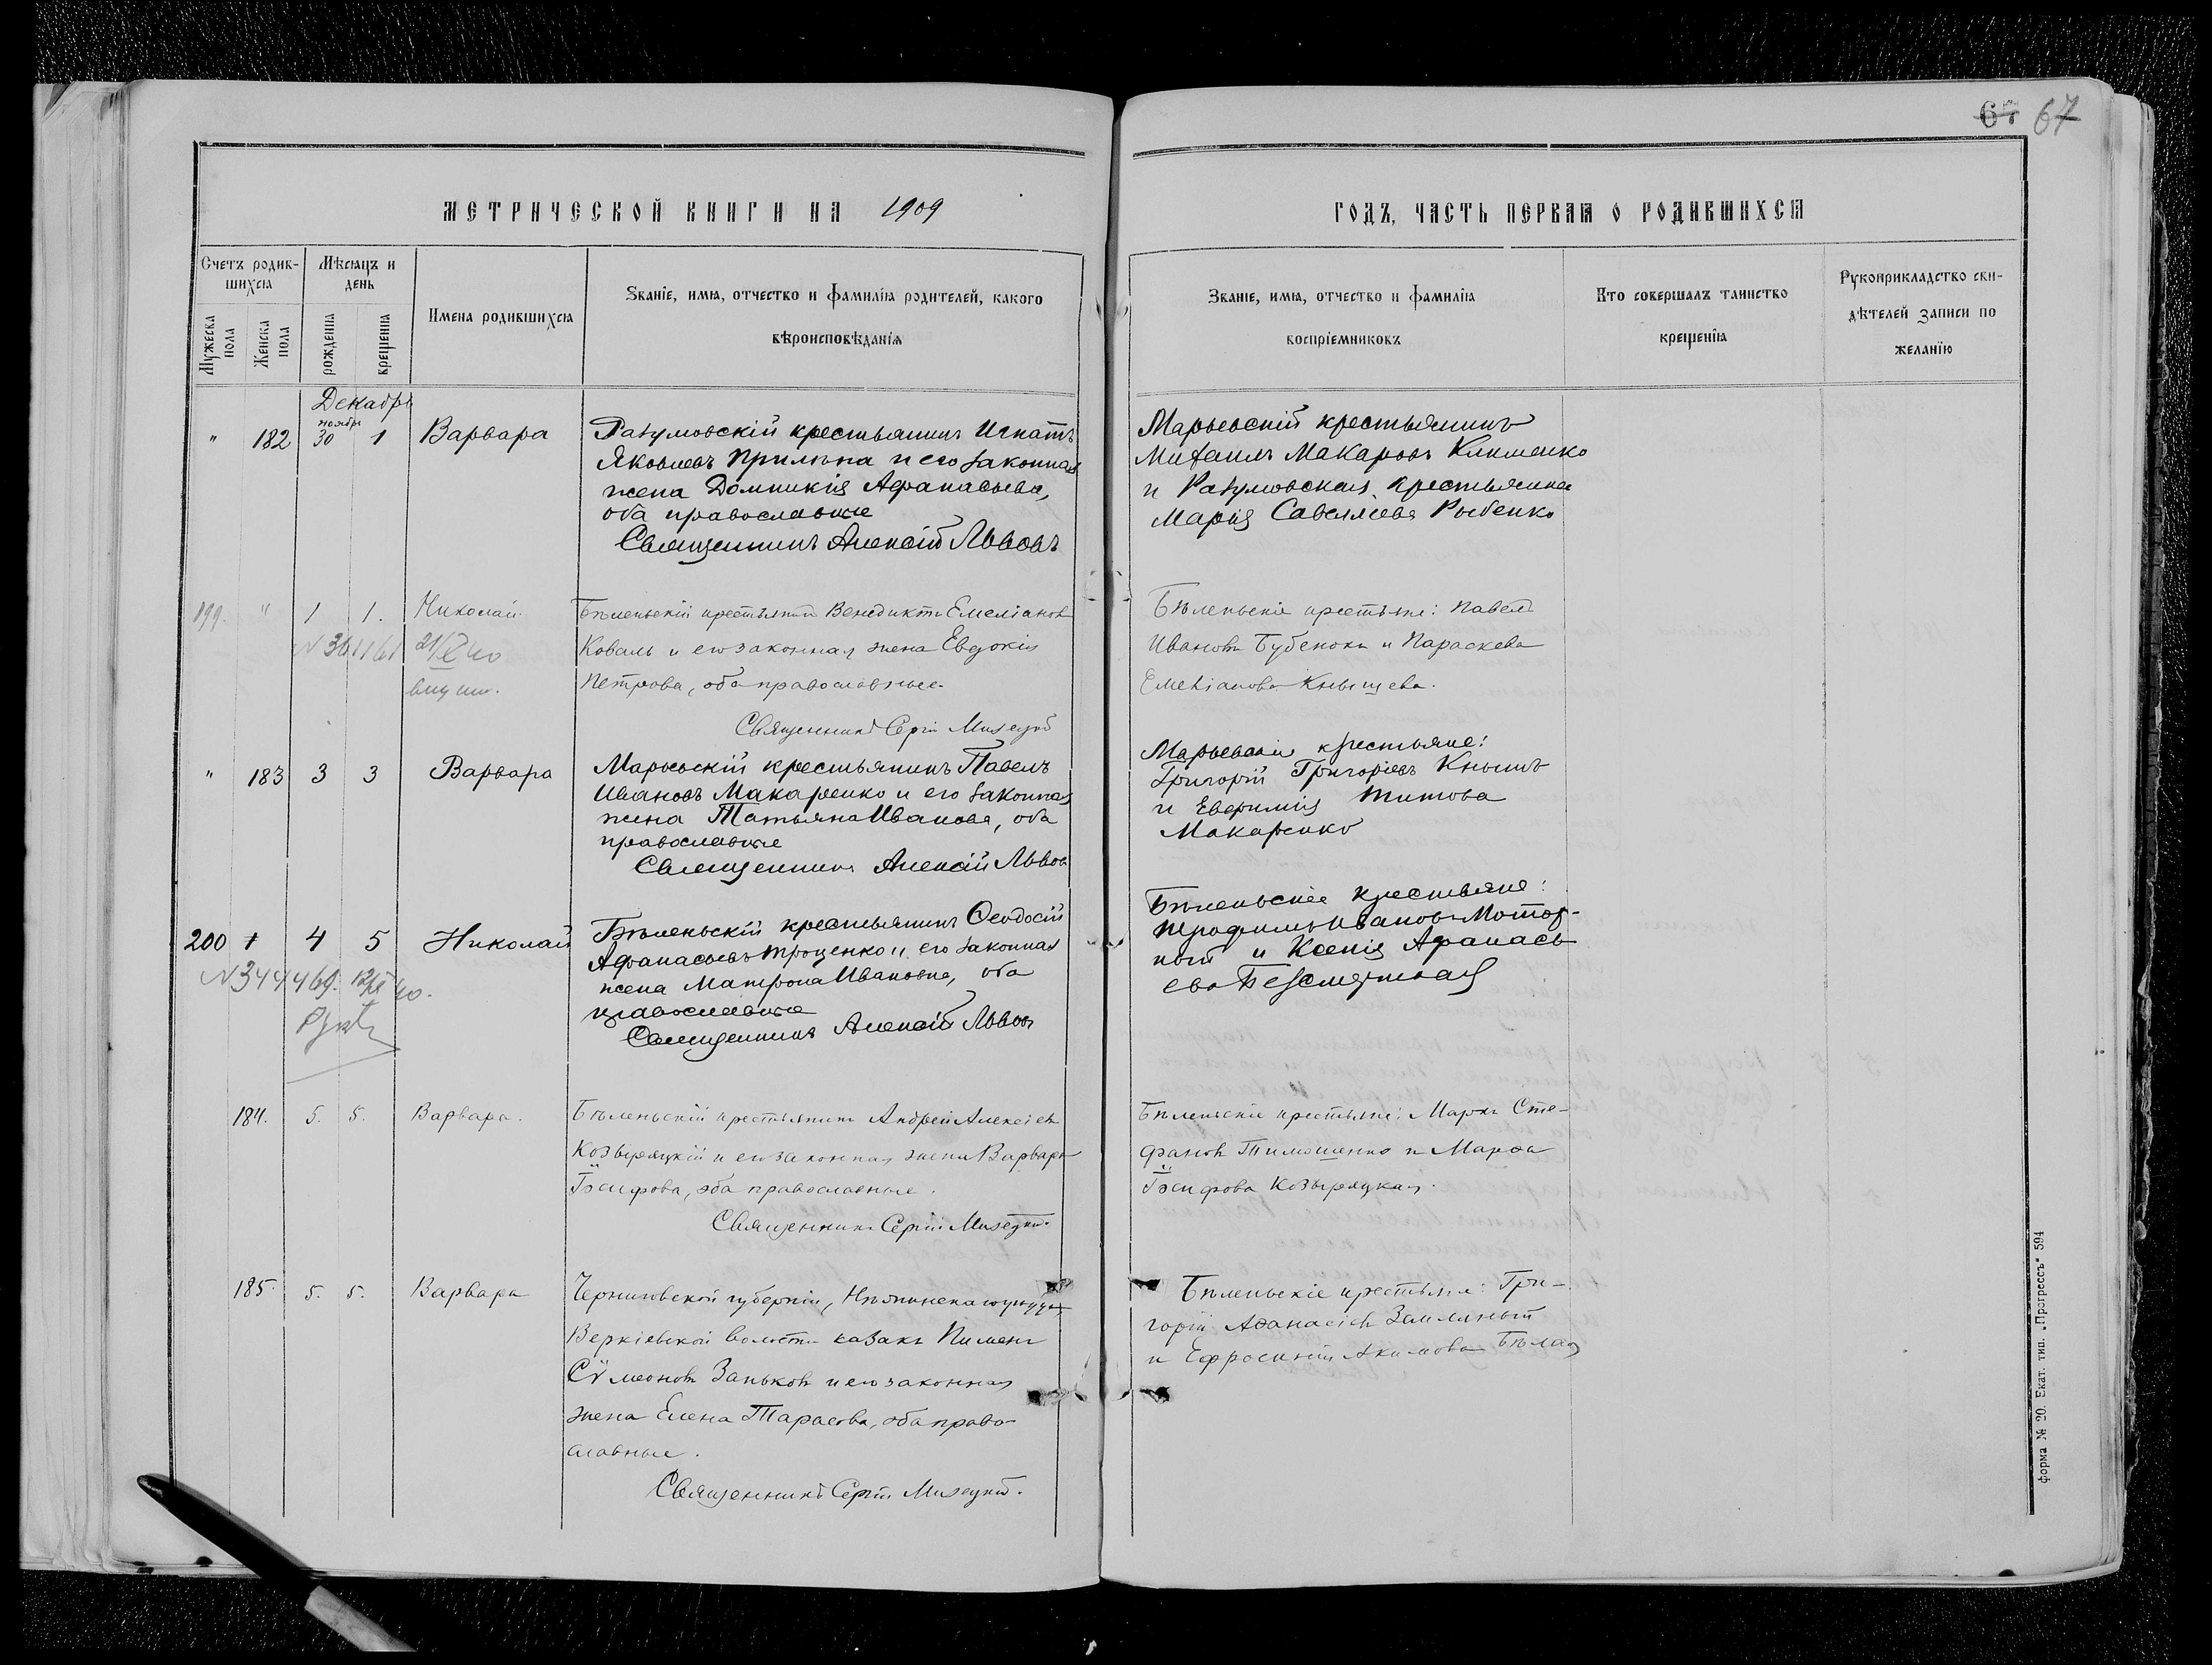 67 67
МЕТРИЧЕСКОЙ КНИГИ НА 1909
ГОДЪ, ЧАСТЬ ПЕРВАЯ О РОДИВШИХСЯ
Счетъ родив-
шихся
Мѣсяцъ и
день
Мужеска
пола
Женска
пола
рожденія
крещенія
Имена родившихся
Званіе, имя, отчество и фамилія родителей, какого
вѣроисповѣданія
Званіе, имя, отчество и фамилія
воспріемниковъ
Кто совершалъ таинство
крещенія
Рукоприкладство сви-
дѣтелей записи по
желанію
Декабрь
ноября
" 182 30 1 Варвара
Разумовскій крестьянинъ Игнатъ
Яковлевъ и его законная
жена Домникія Афанасьева,
оба православные
Священникъ Алексій Львовъ
Марьевскій крестьянинъ
Михаилъ Макаровъ Клименко
и Разумовская крестьянка
Марія Савельева Рыбенко
199. " 1 1. Николай.
N 361161 21/X 40
Бѣленьскій крестьянинъ Венедиктъ Емеліановъ
Коваль и его законная жена Евдокія
Петрова, оба православные.
Священникъ Сергій Мизецкій
Бѣленьскіе крестьяне: Павелъ
Ивановъ Бубенокъ и Параскева
Емеліанова Кнышева.
" 183 3 3 Варвара
Марьевскій крестьянинъ Павелъ
Ивановъ Макаренко и его законная
жена Татьяна Иванова, оба
православные
Священникъ Алексій Львовъ
Марьевскіе крестьяне:
Григорій Григоріевъ Кнышъ
и Евфимія Титова
Макаренко
200 + 4 5 Николай
N 344469.
Бѣленьскій крестьянинъ Ѳеодосій
Афанасьевъ Троценко и его законная
жена Матрона Ивановна, оба
православные
Священникъ Алексій Львовъ
Бѣленьскіе крестьяне:
Трофимъ Ивановъ Мотор-
ный и Ксенія Афанась-
ева Безсмертная
184. 5. 5. Варвара.
Бѣленьскій крестьянинъ Андрей Алексіевъ
Козыряцкій и его законная жена Варвара
Іосифова, оба православные.
Священникъ Сергій Мизецкій.
Бѣленьскіе крестьяне: Маркъ Сте-
фановъ Тимошенко и Марѳа
Іосифова Козыряцкая.
185. 5. 5. Варвара
Черниговской губерніи, Нѣжинскаго уѣзда,
Веркіевской волости казакъ Пименъ
Сѵмеоновъ Заньковъ и его законная
жена Елена Тарасова, оба право-
славные.
Священникъ Сергій Мизецкій.
Бѣленьскіе крестьяне: Гри-
горій Аѳанасіевъ Земляный
и Ефросинія Акимова Бѣлая
форма № 20. Екат. тип. „Прогрессъ" 594